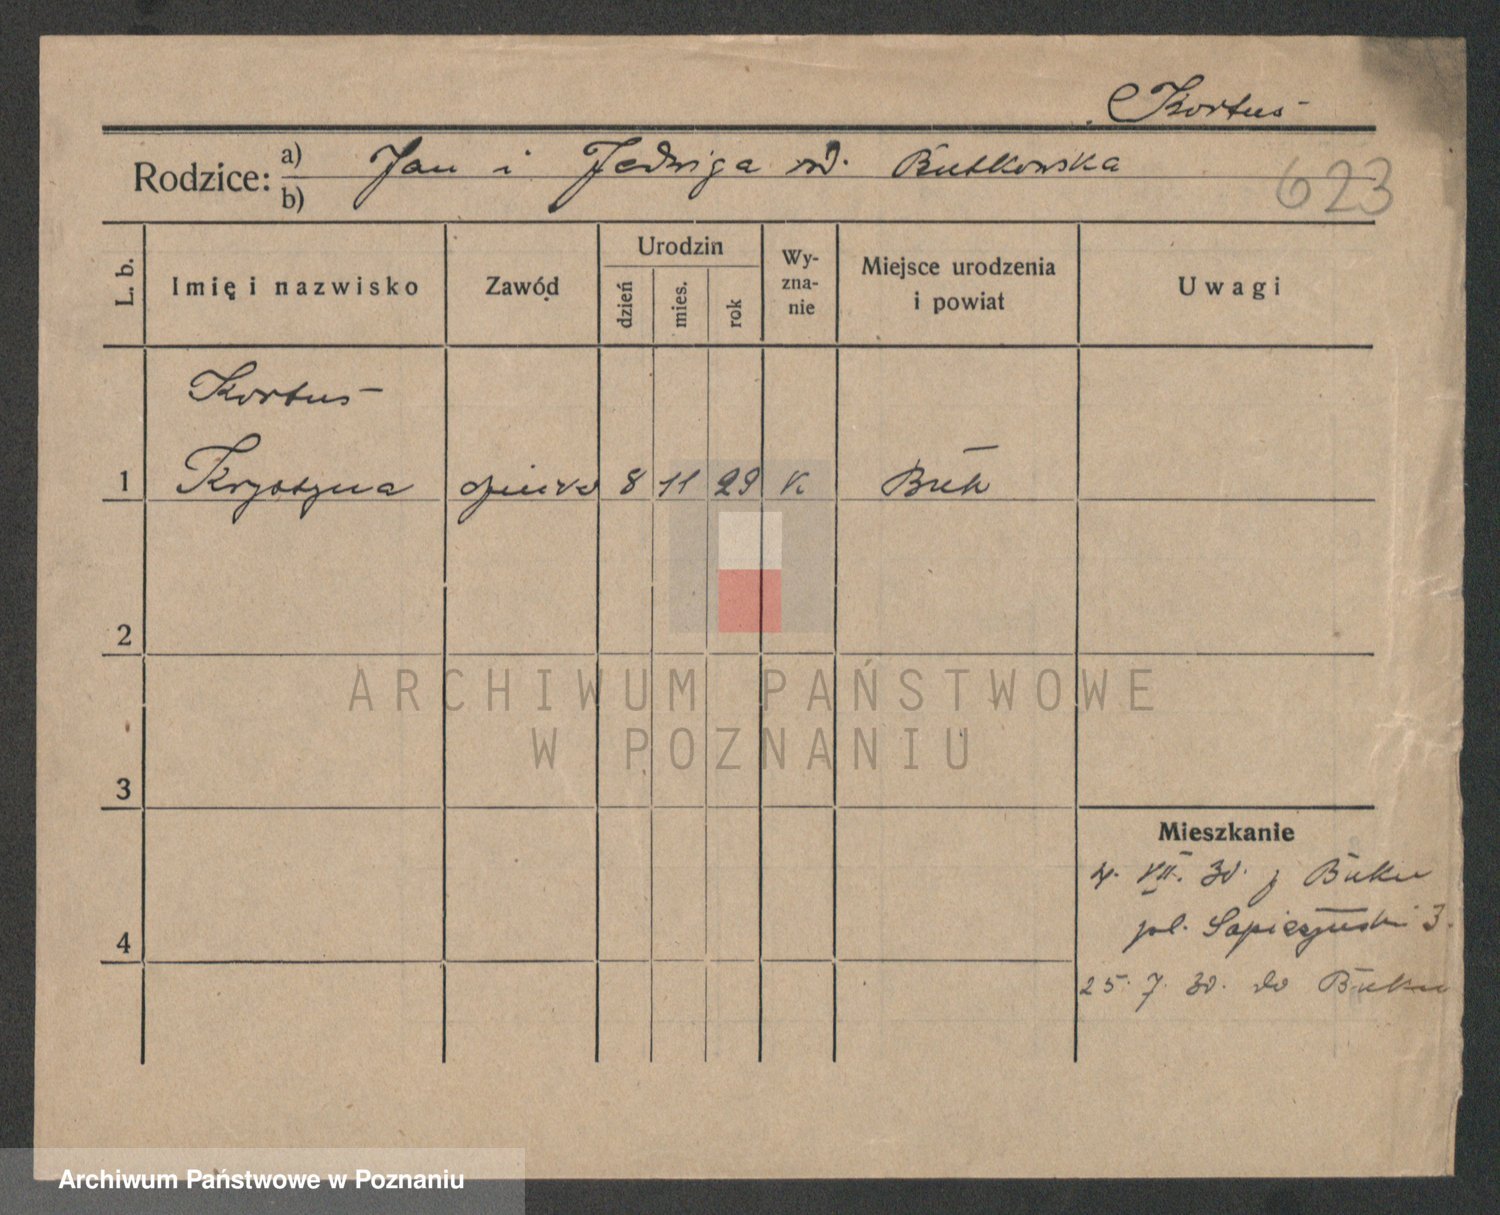 Kortus
Rodzice: a) b) Jan i Jadwiga Butkowska
623
L. b.
Imię i nazwisko
Zawód
Urodzin
dzień
mies.
rok
Wy-
zna-
nie
Miejsce urodzenia
i powiat
Uwagi
Kortus
1 Krystyna 8 11 29 K Buk
2
3
4
Mieszkanie
4. VII. 30. z Buku
pl. Sapieżyński 3.
25. 7. 30. do Buku
ARCHIWUM PAŃSTWOWE
W POZNANIU
Archiwum Państwowe w Poznaniu